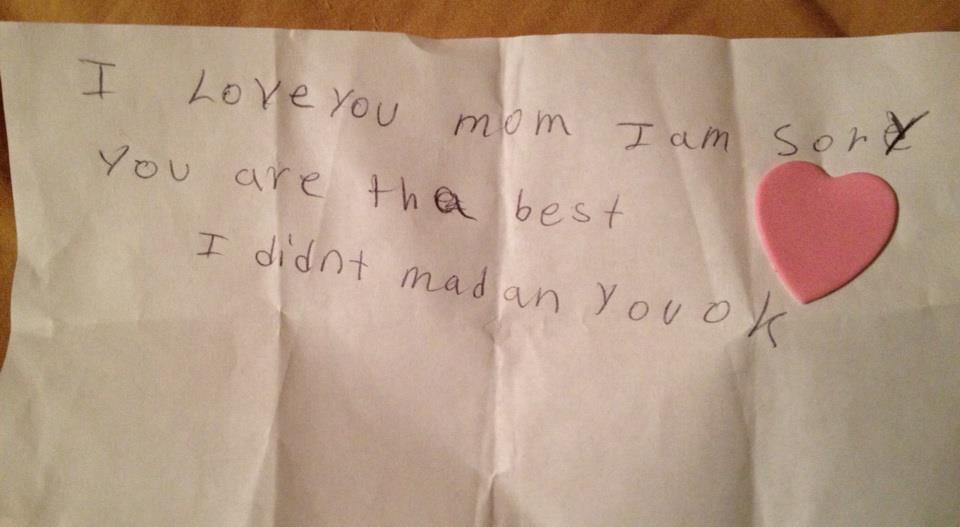 I Love You mom I am sory
You are tha best
I didnt mad an you ok